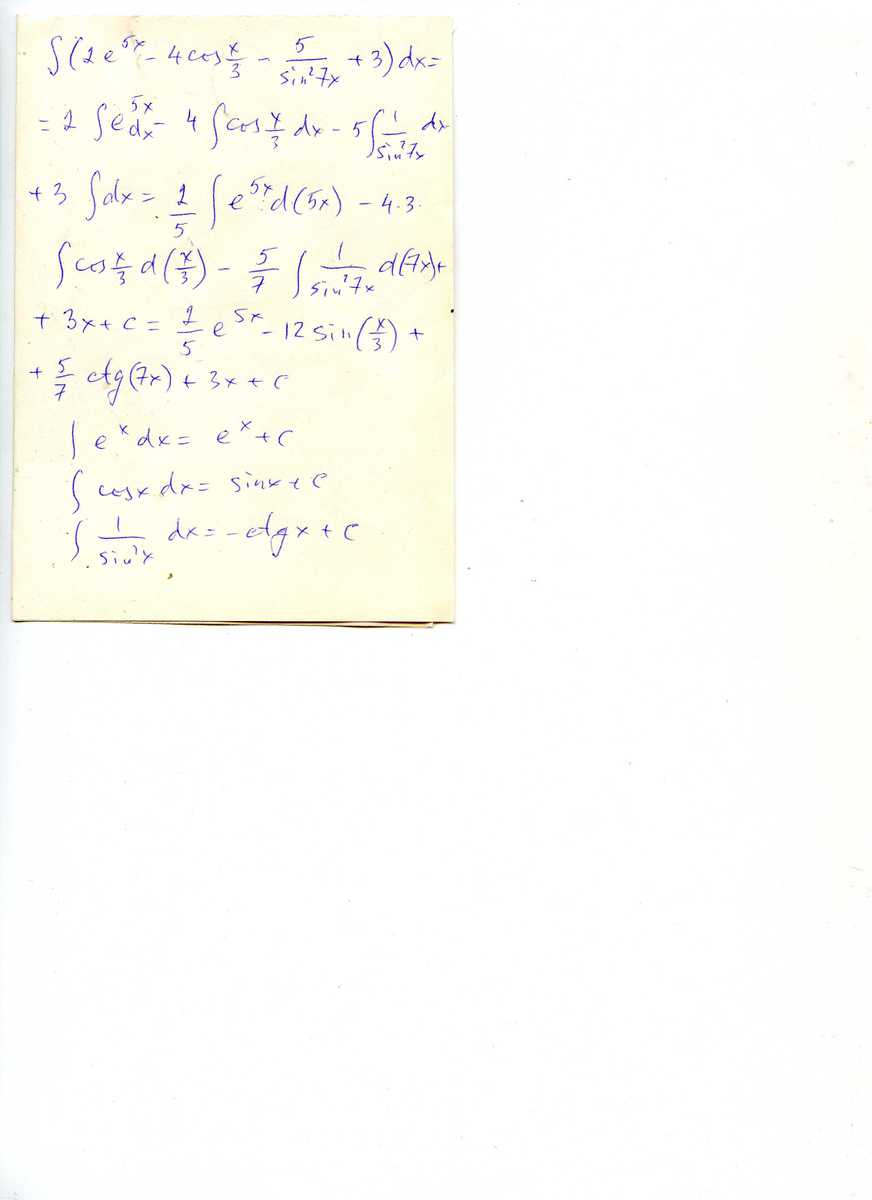 ∫(2e^(5x) - 4cos x/3 - 5/sin²7x + 3)dx=
= 2 ∫e^(5x)dx - 4 ∫cos x/3 dx - 5∫ 1/sin²7x dx
+ 3 ∫dx = 2/5 ∫ e^(5x) d(5x) - 4·3·
∫cos x/3 d(x/3) - 5/7 ∫ 1/sin²7x d(7x)+
+ 3x + c = 2/5 e^(5x) - 12 sin(x/3) +
+ 5/7 ctg(7x) + 3x + c
∫ e^x dx = e^x + c
∫ cosx dx = sinx + c
∫ 1/sin²x dx = -ctgx + c